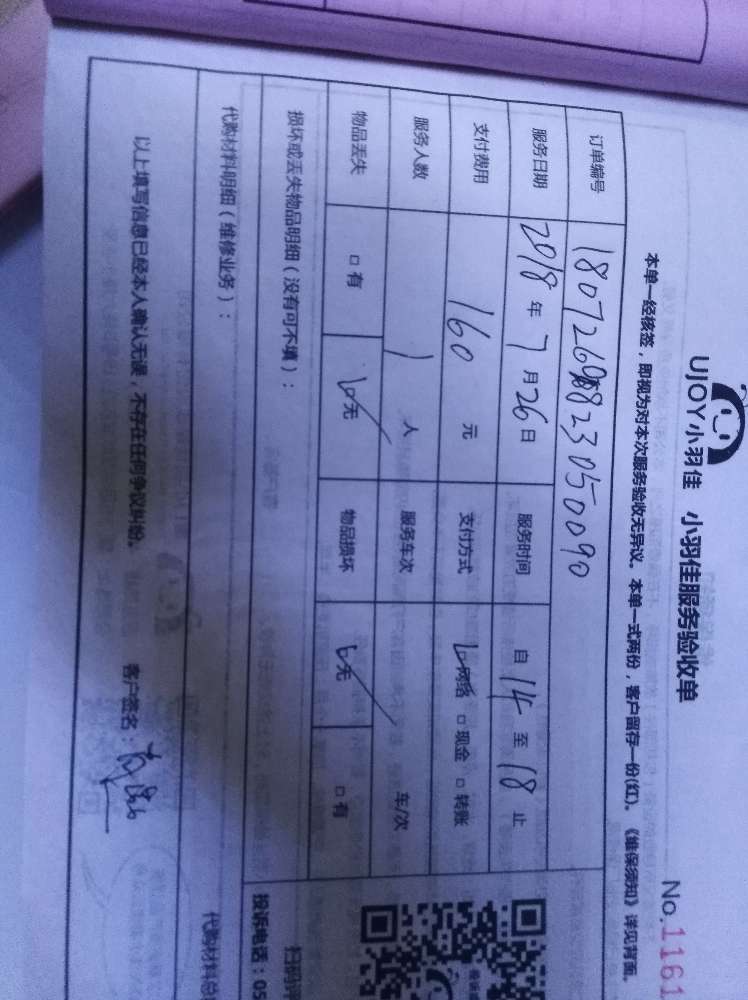 UJOY小羽佳 小羽佳服务验收单
No.1161
本单一经核签，即视为对本次服务验收无异议。本单一式两份，客户留存一份(红)。《维保须知》详见背面。
订单编号
服务日期 2018 年 7 月 26 日 服务时间 自 14 至 18 止
支付费用 160 元 支付方式 □网络 □现金 □转账
服务人数 1 人 服务车次 车/次
物品丢失 □有 □无 物品损坏 □无 □有
损坏或丢失物品明细（没有可不填）：
扫码评
投诉电话：05
代购材料明细（维修业务）：
代购材料总
以上填写信息已经本人确认无误，不存在任何争议纠纷。 客户签名：